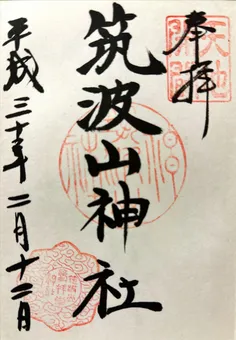 奉拝
筑波山神社
平成三十年二月十二日